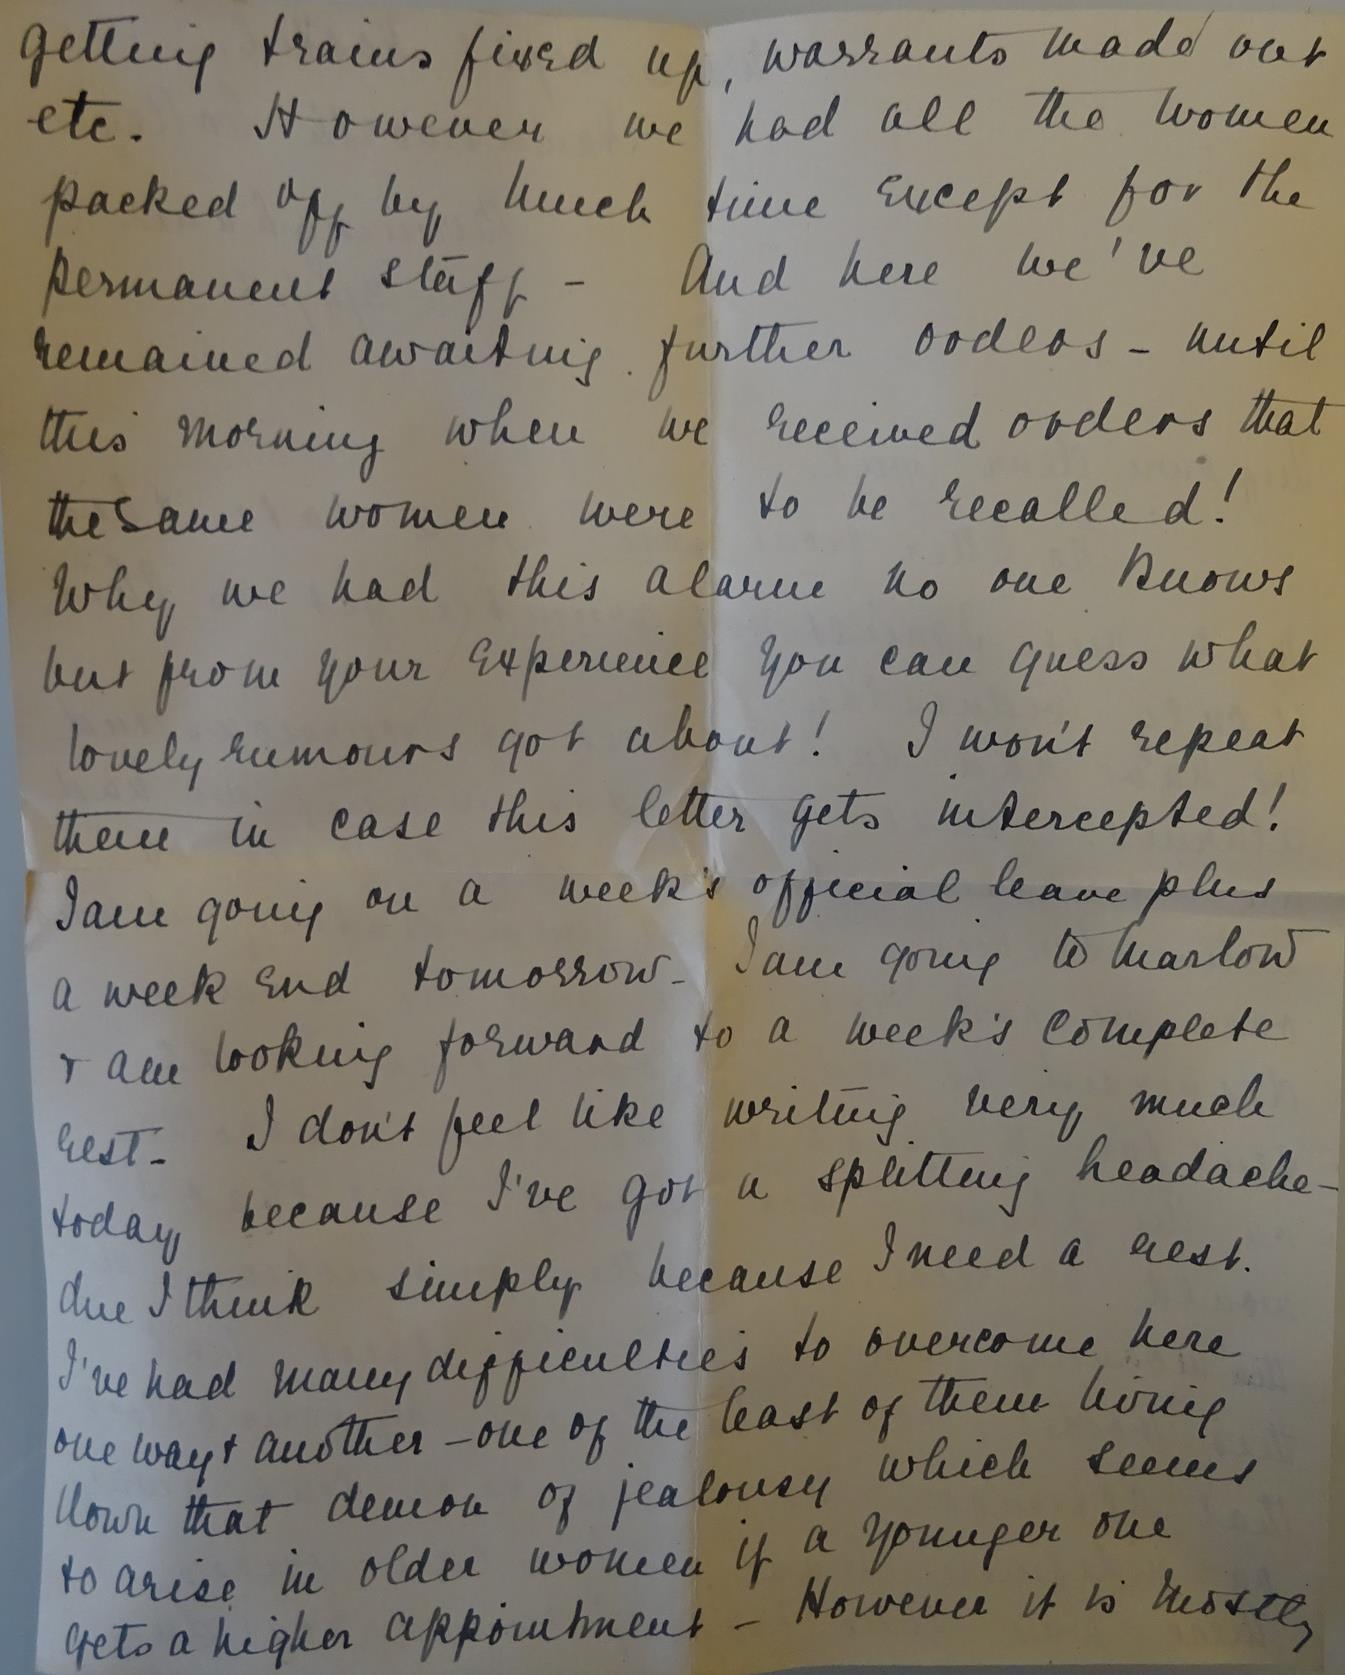 getting trains fixed up, warrants made out
etc. However we had all the women
packed off by lunch time except for the
permanent staff - And here we've
remained awaiting further orders - until
this morning when we received orders that
the same women were to be recalled!
Why we had this alarm no one knows
but from your experience you can guess what
lovely rumours got about! I won't repeat
them in case this letter gets intercepted!
I am going on a week's official leave plus
a week end tomorrow - I am going to Marlow
+ am looking forward to a week's complete
rest - I don't feel like writing very much
today because I've got a splitting headache -
due I think simply because I need a rest.
I've had many difficulties to overcome here
one way + another - one of the least of them living
down that demon of jealousy which seems
to arise in older women if a younger one
gets a higher appointment - However it is mostly